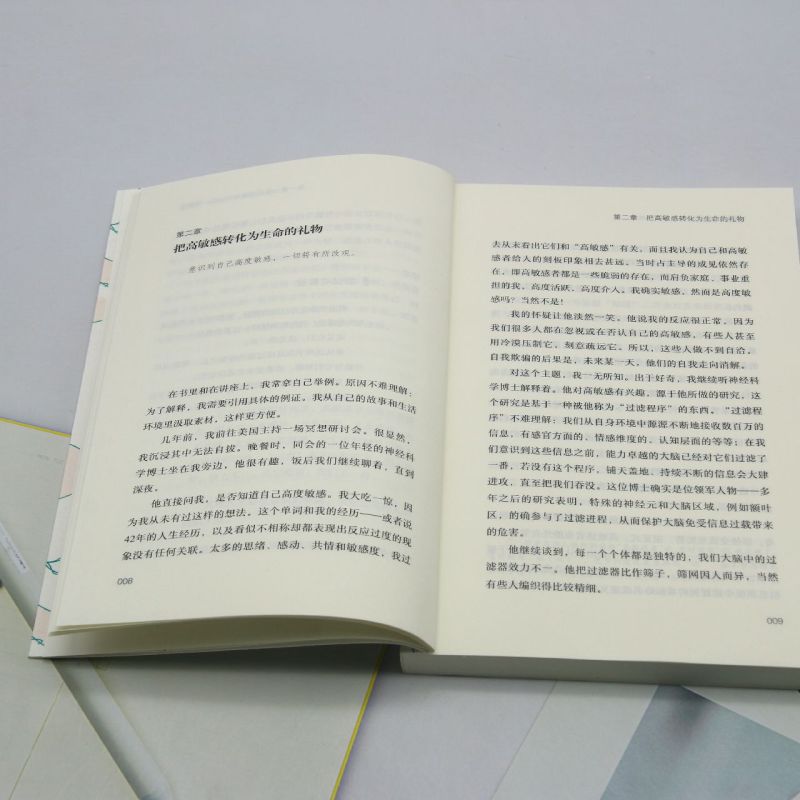 第二章
把高敏感转化为生命的礼物
意识到自己高度敏感，一切将有所改观。
在书里和在讲座上，我常拿自己举例。原因不难理解：
为了解释，我需要引用具体的例证。我从自己的故事和生活
环境里汲取素材，这样更方便。
几年前，我前往美国主持一场冥想研讨会。很显然，
我沉浸其中无法自拔。晚餐时，同会的一位年轻的神经科
学博士坐在我旁边，他很有趣，饭后我们继续聊着，直到
深夜。
他直接问我，是否知道自己高度敏感。我大吃一惊，因
为我从未有过这样的想法。这个单词和我的经历——或者说
42年的人生经历，以及看似不相称却都表现出反应过度的现
象没有任何关联。太多的思绪、感动、共情和敏感度，我过
008
第二章 把高敏感转化为生命的礼物
去从未看出它们和“高敏感”有关。而且我认为自己和高敏
感者给人的刻板印象相去甚远。当时占主导的成见依然存
在，即高敏感者都是一些脆弱的存在，而肩负家庭、事业重
担的我，高度活跃、高度介入。我确实敏感，然而是高度敏
感吗？当然不是！
我的怀疑让他淡然一笑。他说我的反应很正常，因为
我们很多人都在忽视或在否认自己的高敏感，有些人甚至
用冷漠压制它，刻意疏远它。所以，这些人做不到自洽，
自我欺骗的后果是，未来某一天，他们的自我走向消解。
对这个主题，我一无所知。出于好奇，我继续听神经科
学博士解释着。他对高敏感有兴趣，源于他所做的研究，这
个研究是基于一种被他称为“过滤程序”的东西。“过滤程
序”不难理解：我们从自身环境中源源不断地接收数百万的
信息，有感官方面的、情感维度的、认知层面的等等；在我
们意识到这些信息之前，能力卓越的大脑已经对它们过滤了
一番，若没有这个程序，铺天盖地、持续不断的信息会大肆
进攻，直至把我们吞没。这位博士确实是位领军人物——多
年之后的研究表明，特殊的神经元和大脑区域，例如额叶
区，的确参与了过滤进程，从而保护大脑免受信息过载带来
的危害。
他继续谈到，每一个个体都是独特的，我们大脑中的过
滤器效力不一。他把过滤器比作筛子，筛网因人而异，当然
有些人编织得比较精细。
009